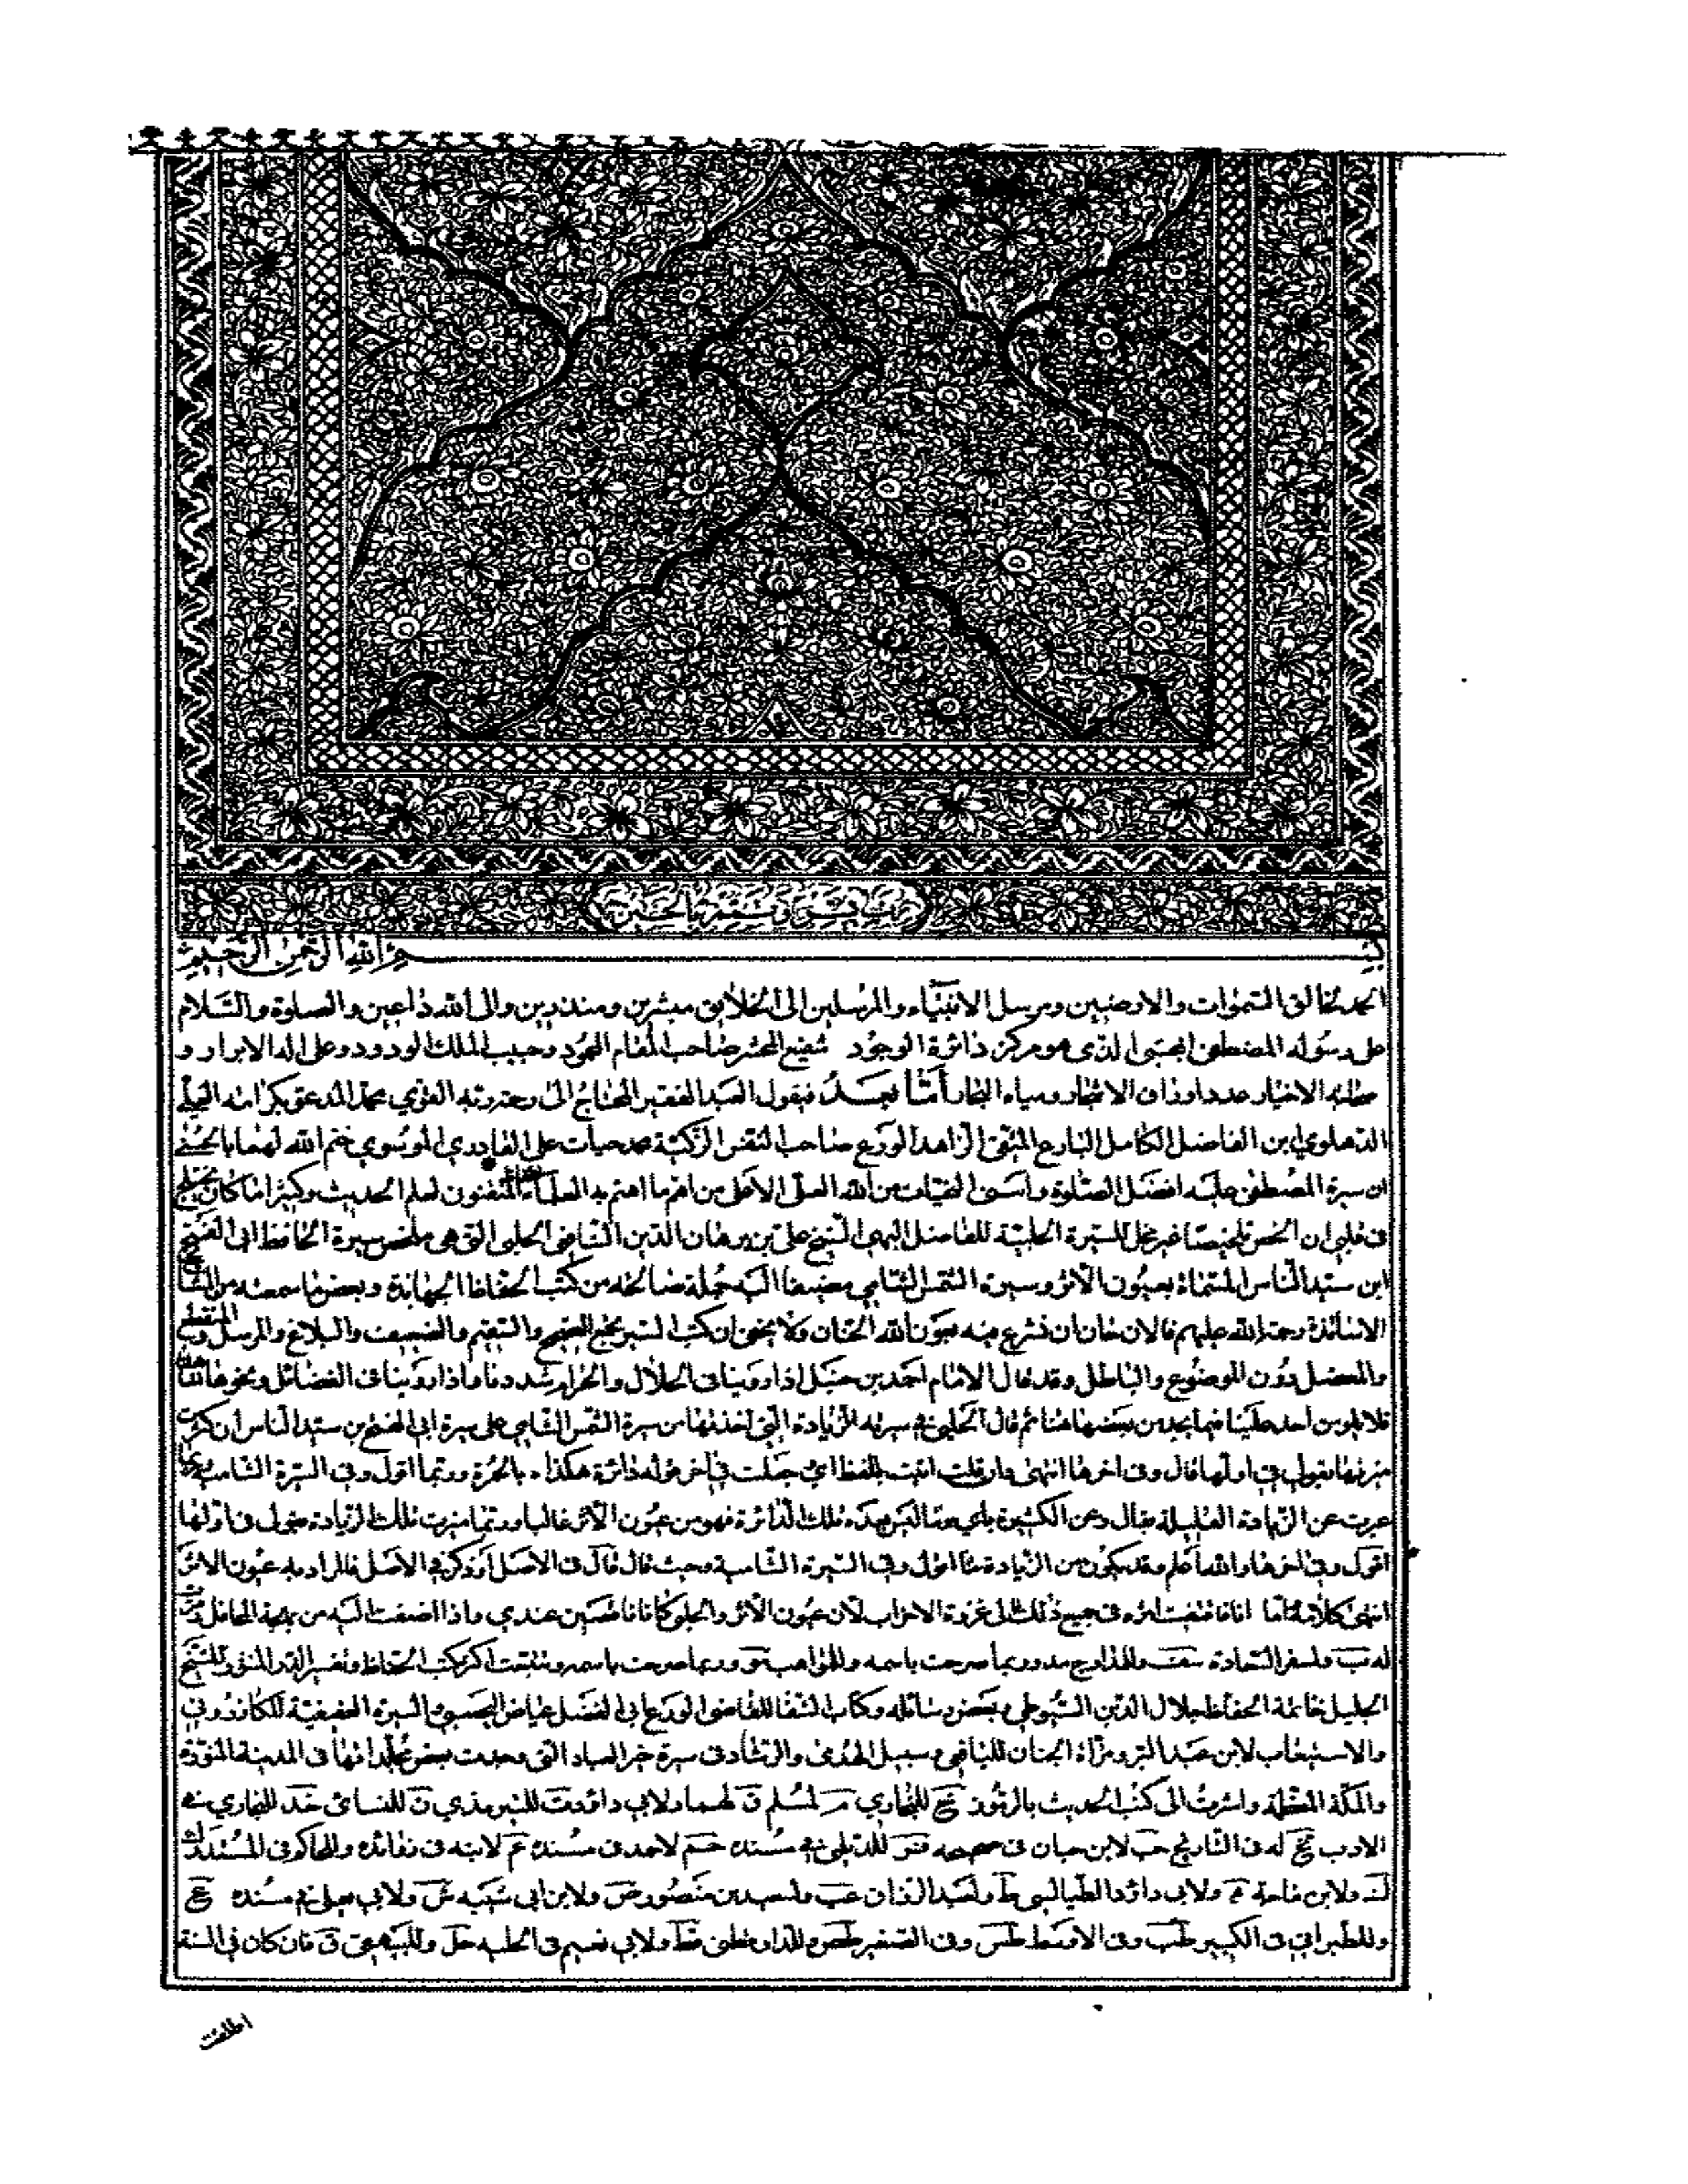 رب يسر وتمم بالخير
بسم الله الرحمن الرحيم
الحمد لخالق السموات والارضين ومرسل الانبياء والمرسلين الى الخلايق مبشرين ومنذرين والى الله داعين والصلوة والسلام
على رسوله المصطفى المجتبى الذي هو مركز دائرة الوجود شفيع المحشر صاحب المقام المحمود وحبيب الملك الودود وعلى اله الابرار و
صحابه الاخيار عدد اوراق الاشجار ومياه البحار أما بعد فيقول العبد الفقير المحتاج الى رحمة ربه القوي محمد المدعو بكرامة العلي
الدهلوي ابن الفاضل الكامل البارع المتقي الزاهد الورع صاحب النفس الزكية محمد حيات علي القادري الموسوي ختم الله لهما بالحسنى
ان سيرة المصطفى عليه افضل الصلوة واسنى التحيات من الله العلي الاعلى من اهم ما اهتم به العلماء المتقنون لعلم الحديث وكثيرا ما كان يختلج
في قلبي ان الخص تلخيصا غير مخل للسيرة الحلبية للفاضل الشيخ علي بن برهان الدين الشافعي الحلبي التي هي ملخص سيرة الحافظ ابي الفتح
ابن سيد الناس المسماة بعيون الاثر وسيرة الشمس الشامي مضيفا اليه جملة صالحة من كتب الحفاظ الجهابذة وبعض ما سمعته من المشايخ
الاساتذة رحمة الله عليهم فالان حان ان نشرع فيه بعون الله الحنان ولا يخفى ان كتب السير يجمع الصحيح والسقيم والضعيف والبلاغ والمرسل والمنقطع
والمعضل دون الموضوع والباطل وقد قال الامام احمد بن حنبل اذا روينا في الحلال والحرام شددنا واذا روينا في الفضائل ونحوها تساهلنا
فلا يلومن احد علينا فيما يجد من بعضها هنا ثم قال الحلبي في سيرته الزيادة التي اخذتها من سيرة الشمس الشامي على سيرة ابي الفتح بن سيد الناس ان كثرت
ميزتها بقولي في اولها قال وفي اخرها انتهى وان قلت اتيت بلفظ اي جعلت في اخر قوله دائرة هكذا ه بالحمرة وربما اقول وفي السيرة الشامية وربما
عبرت عن الزيادة القليلة بقال وعن الكثيرة باي وما ليس بعده تلك الدائرة فهو من عيون الاثر غالبا وربما ميزت تلك الزيادة بقولي في اولها
اقول وفي اخرها والله اعلم وقد يكون من الزيادة ما اقول وفي السيرة الشامية وحيث قال قال في الاصل او ذكر في الاصل فالمراد به عيون الاثر
انتهى كلامه اما انا فاقتفيت اثره في جميع ذلك الى غزوة الاحزاب لان عيون الاثر والحلبي كانا غائبين عندي واذا اضفت اليه من بهجة المحافل
له ب ولسفر السعادة سف والمدارج مد وربما صرحت باسمه والمواهب مو وربما صرحت باسمه وتتبعت اكثر كتب الحفاظ وتفسير الدر المنثور للشيخ
الجليل خاتمة الحفاظ جلال الدين السيوطي وبعض رسائله وكتاب الشفا للقاضي الورع ابي الفضل عياض اليحصبي والسيرة العفيفية للكازروني
والاستيعاب لابن عبد البر ومرآة الجنان لليافعي وسبيل الهدى والرشاد في سيرة خير العباد التي وجدت بعض مجلداتها في المدينة المنورة
والمكة المعظمة واشرت الى كتب الحديث بالرموز خ للبخاري م لمسلم ق لهما د لابي داود ت للترمذي ن للنسائي خد للبخاري في
الادب تخ له في التاريخ حب لابن حبان في صحيحه فر للديلمي في مسنده حم لاحمد في مسنده عم لابنه في زوائده وللحاكم في المستدرك
ك ولابن ماجة ه ولابي داؤد الطيالسي ط ولعبد الرزاق عب ولسعيد بن منصور ص ولابن ابي شيبة ش ولابي يعلى في مسنده ع
وللطبراني في الكبير طب وفي الاوسط طس وفي الصغير طص وللدارقطني قط ولابي نعيم في الحلية حل وللبيهقي ق فان كان في السنن
اطلقت